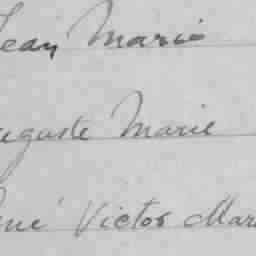 Jean Marie
Auguste Marie
René Victor Mar